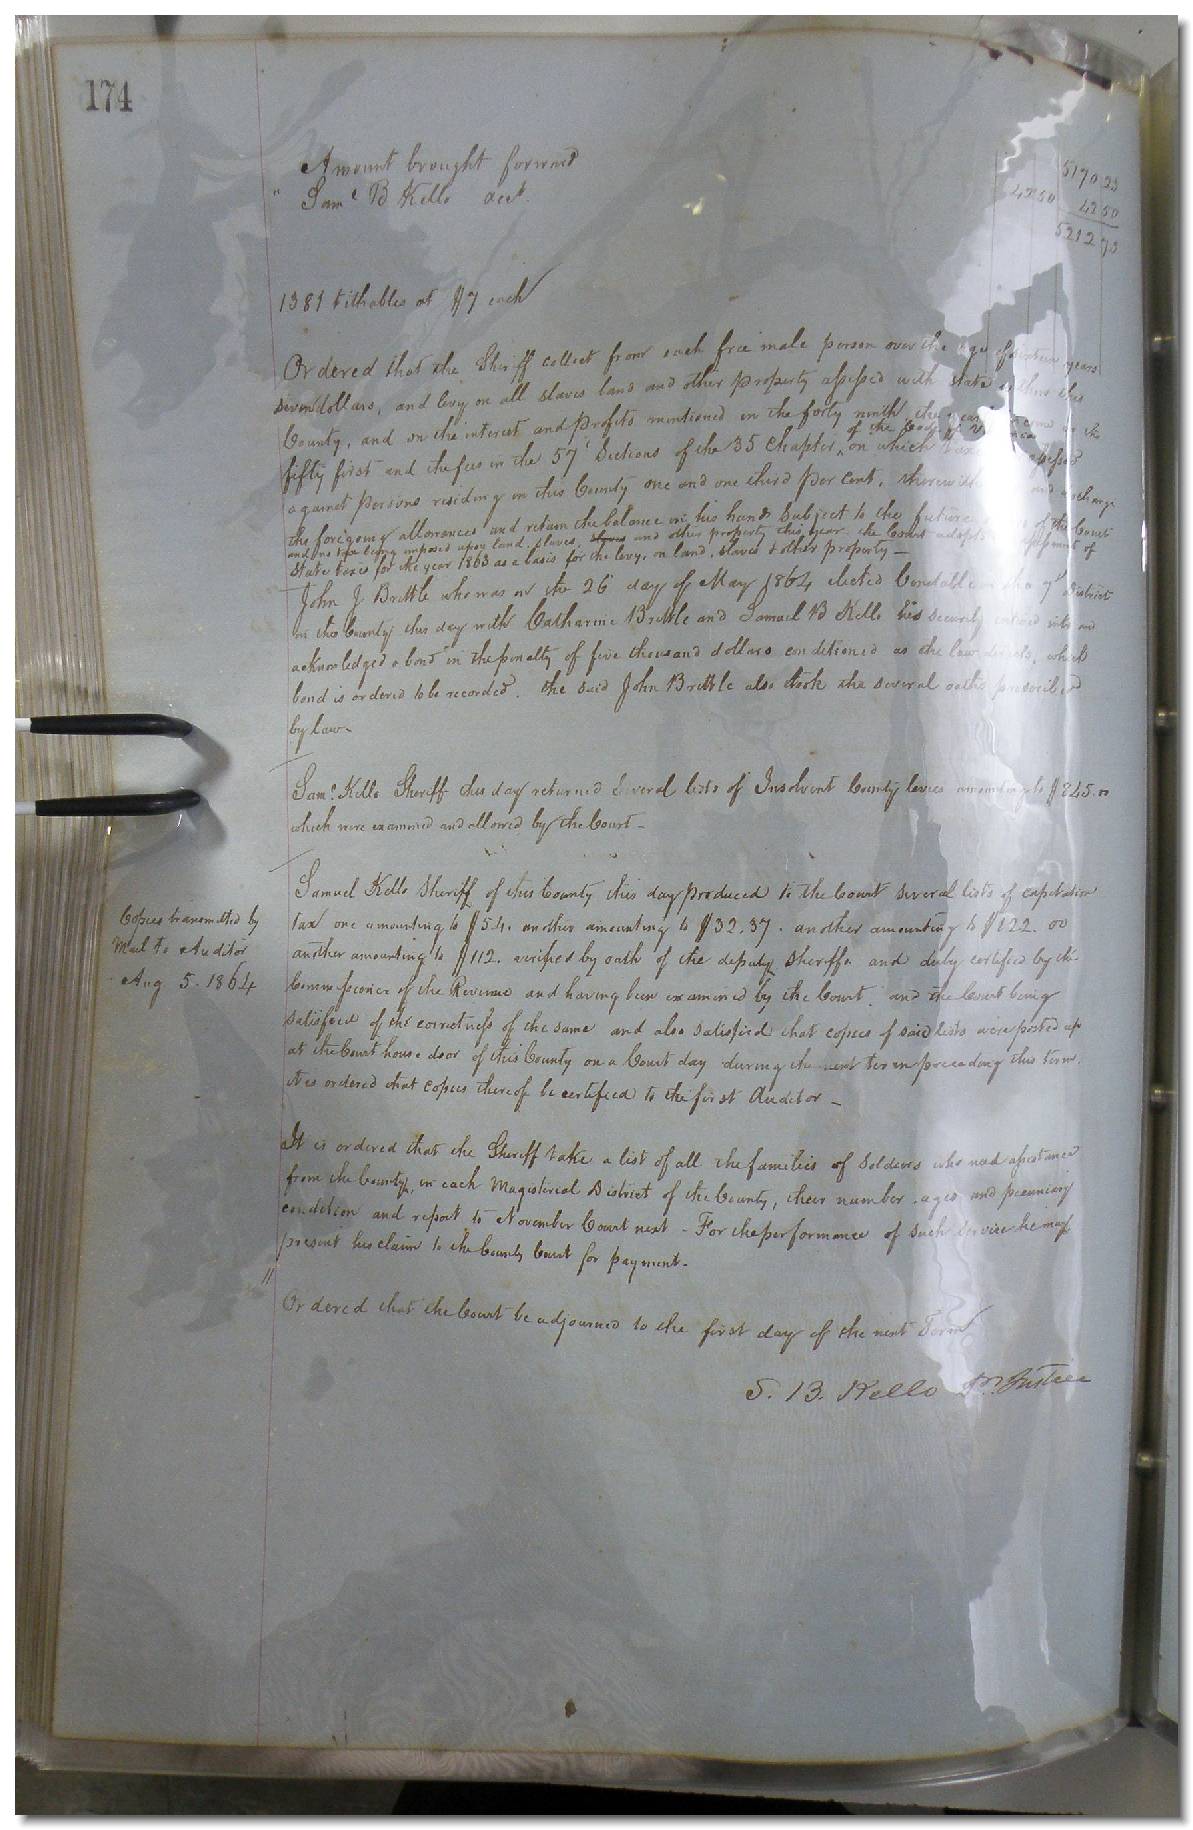 174
Amount brought forward 5170.23
" Saml B Kello acct. 42 50 42 50
5212 73
1381 tithables at $7 each
Ordered that the Sheriff collect from each free male person over the age of sixteen years
seven dollars, and levy on all slaves land and other property assessed with state within this
County, and on the interest and profits mentioned in the forty ninth, the
of the Code of
fifty first and the fees in the 57th Sections of the 35 Chapter, on which assessed
against persons residing in this County one and one third per cent, and discharge
the foregoing allowances and return the balance in his hands subject to the future of the Court
and no tax being imposed upon land, slaves, and other property this year the Court adopts assessment of
state taxes for the year 1863 as a basis for the levy, on land, slaves & other property —
John J Brittle who was on the 26 day of May 1864 elected Constable in the 7th District
in this County this day with Catharine Brittle and Samuel B Kello his security entered into and
acknowledged a bond in the penalty of five thousand dollars conditioned as the law directs, which
bond is ordered to be recorded. The said John Brittle also took the several oaths prescribed
by law.
Saml. Kello Sheriff this day returned several lists of Insolvent County levies amounting to $845.00
which were examined and allowed by the Court —
Samuel Kello Sheriff of this County this day produced to the Court several lists of capitation
tax one amounting to $54. another amounting to $32.37. another amounting to $122.00
another amounting to $112. verified by oath of the deputy Sheriffs and duly certified by the
Commissioner of the Revenue and having been examined by the Court. and the Court being
satisfied of the correctness of the same and also satisfied that copies of said lists were posted up
at the Court house door of this County on a Court day during the next term preceeding this term.
it is ordered that copies thereof be certified to the first Auditor —
Copies transmitted by
Mail to Auditor
Aug 5. 1864
It is ordered that the Sheriff take a list of all the families of Soldiers who need assistance
from the County, in each Magisterial District of the County, their number, ages and pecuniary
condition and report to November Court next — For the performance of such service he may
present his claim to the County Court for payment.
"
Ordered that the Court be adjourned to the first day of the next Term
S. B. Kello Pr. Justice